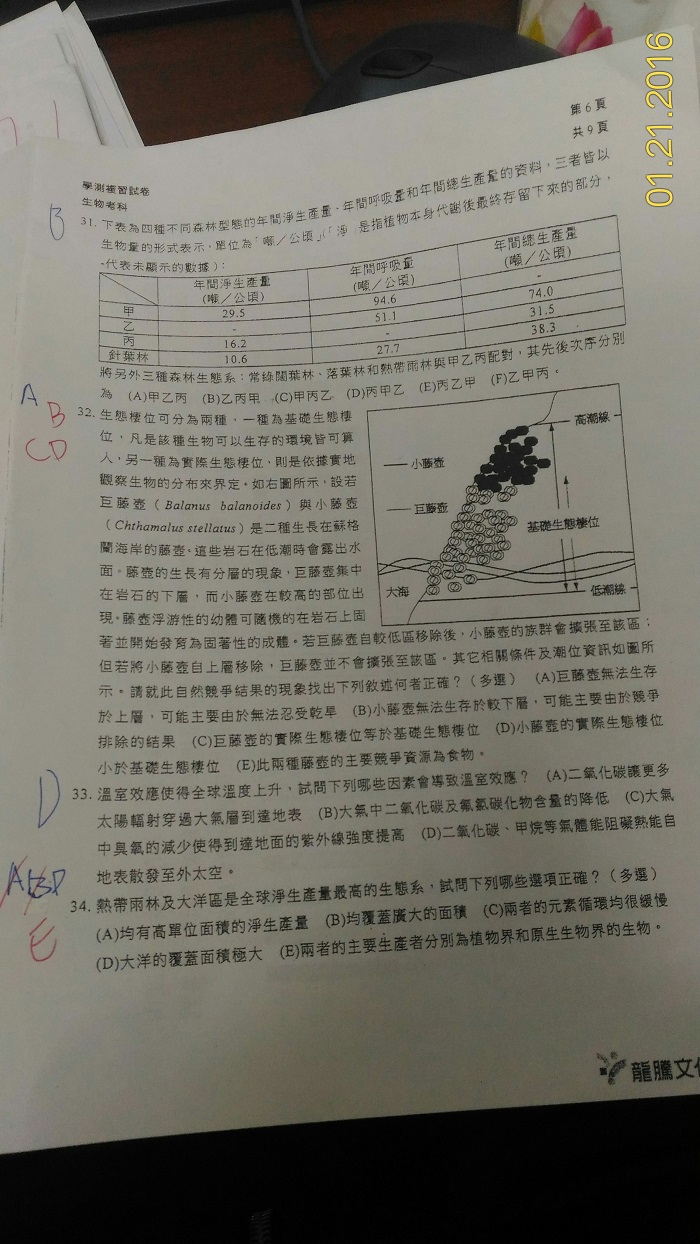 01.21.2016
第6頁
共9頁
學測複習試卷
生物考科
B
31. 下表為四種不同森林型態的年間淨生產量、年間呼吸量和年間總生產量的資料，三者皆以
生物量的形式表示，單位為「噸／公頃」(「淨」是指植物本身代謝後最終存留下來的部分，
-代表未顯示的數據)：
年間淨生產量 年間呼吸量 年間總生產量
(噸／公頃) (噸／公頃) (噸／公頃)
甲 29.5 94.6 -
乙 - 51.1 74.0
丙 16.2 - 31.5
針葉林 10.6 27.7 38.3
將另外三種森林生態系：常綠闊葉林、落葉林和熱帶雨林與甲乙丙配對，其先後次序分別
為 (A)甲乙丙 (B)乙丙甲 (C)甲丙乙 (D)丙甲乙 (E)丙乙甲 (F)乙甲丙。
A
B
CD
32. 生態棲位可分為兩種，一種為基礎生態棲
位，凡是該種生物可以生存的環境皆可算
入，另一種為實際生態棲位，則是依據實地
觀察生物的分布來界定。如右圖所示，設若
巨藤壺（Balanus balanoides）與小藤壺
（Chthamalus stellatus）是二種生長在蘇格
蘭海岸的藤壺。這些岩石在低潮時會露出水
面。藤壺的生長有分層的現象，巨藤壺集中
在岩石的下層，而小藤壺在較高的部位出
現。藤壺浮游性的幼體可隨機的在岩石上固
著並開始發育為固著性的成體。若巨藤壺自較低區移除後，小藤壺的族群會擴張至該區；
但若將小藤壺自上層移除，巨藤壺並不會擴張至該區。其它相關條件及潮位資訊如圖所
示。請就此自然競爭結果的現象找出下列敘述何者正確？(多選) (A)巨藤壺無法生存
於上層，可能主要由於無法忍受乾旱 (B)小藤壺無法生存於較下層，可能主要由於競爭
排除的結果 (C)巨藤壺的實際生態棲位等於基礎生態棲位 (D)小藤壺的實際生態棲位
小於基礎生態棲位 (E)此兩種藤壺的主要競爭資源為食物。
高潮線
小藤壺
巨藤壺
基礎生態棲位
大海
低潮線
D
33. 溫室效應使得全球溫度上升，試問下列哪些因素會導致溫室效應？ (A)二氧化碳讓更多
太陽輻射穿過大氣層到達地表 (B)大氣中二氧化碳及氟氯碳化物含量的降低 (C)大氣
中臭氧的減少使得到達地面的紫外線強度提高 (D)二氧化碳、甲烷等氣體能阻礙熱能自
地表散發至外太空。
E
34. 熱帶雨林及大洋區是全球淨生產量最高的生態系，試問下列哪些選項正確？(多選)
(A)均有高單位面積的淨生產量 (B)均覆蓋廣大的面積 (C)兩者的元素循環均很緩慢
(D)大洋的覆蓋面積極大 (E)兩者的主要生產者分別為植物界和原生生物界的生物。
龍騰文